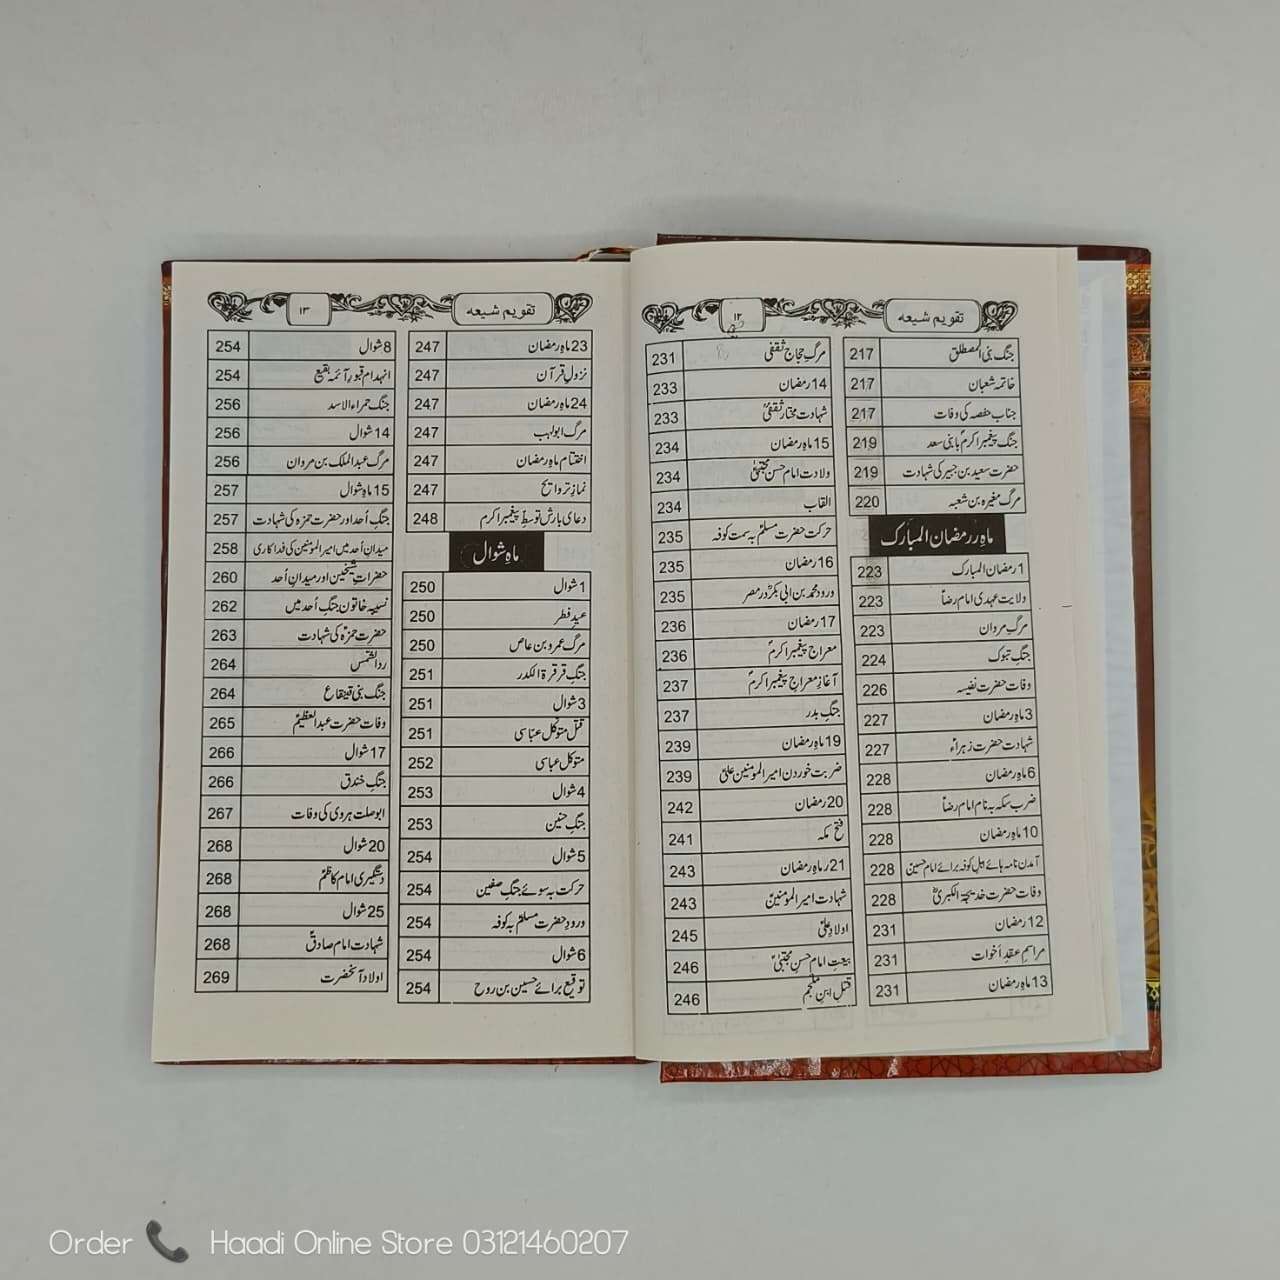 تقویم شیعہ
۱۲
جنگ بنی المصطلق 217
خاتمہ شعبان 217
جناب حفصہ کی وفات 217
جنگ پیغمبر اکرمؐ بابنی سعد 219
حضرت سعید بن جبیر کی شہادت 219
مرگ مغیرہ بن شعبہ 220
ماہِ رمضان المبارک
1 رمضان المبارک 223
ولایت عہدی امام رضاؑ 223
مرگِ مروان 223
جنگِ تبوک 224
وفات حضرت نفیسہ 226
3 ماہِ رمضان 227
شہادت حضرت زہراءؑ 227
6 ماہِ رمضان 228
ضرب سکہ بہ نام امام رضاؑ 228
10 ماہِ رمضان 228
آمدن نامہ ہائے اہلِ کوفہ برائے امام حسینؑ 228
وفات حضرت خدیجۃ الکبریٰؑ 228
12 رمضان 231
مراسمِ عقدِ اخوات 231
13 ماہِ رمضان 231
مرگِ حجاج ثقفی 231
14 رمضان 233
شہادت مختار ثقفیؒ 233
15 ماہِ رمضان 234
ولادت امام حسن مجتبیٰؑ 234
القاب 234
حرکت حضرت مسلمؑ بہ سمت کوفہ 235
16 رمضان 235
ورود محمد بن ابی بکرؓ در مصر 235
17 رمضان 236
معراج پیغمبر اکرمؐ 236
آغازِ معراجِ پیغمبر اکرمؐ 237
جنگِ بدر 237
19 ماہِ رمضان 239
ضربت خوردن امیرالمومنین علیؑ 239
20 رمضان 242
فتح مکہ 241
21 ماہِ رمضان 243
شہادت امیرالمومنینؑ 243
اولادِ علیؑ 245
بیعتِ امام حسن مجتبیٰؑ 246
قتل ابنِ ملجم 246
تقویم شیعہ
۱۳
23 ماہِ رمضان 247
نزولِ قرآن 247
24 ماہِ رمضان 247
مرگ ابولہب 247
اختتام ماہِ رمضان 247
نمازِ تراویح 247
دعای بارش توسطِ پیغمبر اکرم 248
ماہِ شوال
1 شوال 250
عیدِ فطر 250
مرگ عمرو بن عاص 250
جنگِ قرقرۃ الکدر 251
3 شوال 251
قتل متوکل عباسی 251
متوکل عباسی 252
4 شوال 253
جنگِ حنین 253
5 شوال 254
حرکت بہ سوئے جنگِ صفین 254
ورودِ حضرت مسلمؑ بہ کوفہ 254
6 شوال 254
توقیع برائے حسین بن روح 254
8 شوال 254
انہدام قبورِ آئمہ بقیع 254
جنگ حمراء الاسد 256
14 شوال 256
مرگ عبدالملک بن مروان 256
15 ماہِ شوال 257
جنگِ اُحد اور حضرت حمزہ کی شہادت 257
میدانِ اُحد میں امیرالمومنین کی فداکاری 258
حضراتِ شیخین اور میدانِ اُحد 260
نسیبہ خاتون جنگِ اُحد میں 262
حضرت حمزہؑ کی شہادت 263
ردالشمس 264
جنگ بنی قینقاع 264
وفات حضرت عبدالعظیمؑ 265
17 شوال 266
جنگِ خندق 266
ابوصلت ہروی کی وفات 267
20 شوال 268
دستگیری امام کاظمؑ 268
25 شوال 268
شہادت امام صادقؑ 268
اولادِ آنحضرت 269
Order Haadi Online Store 03121460207